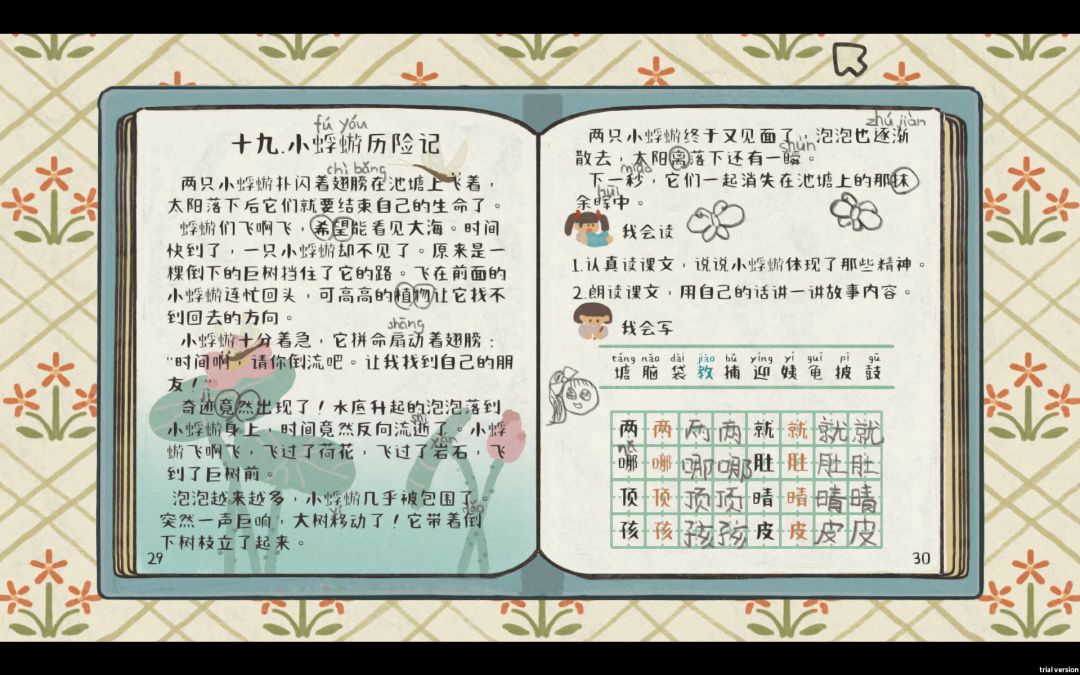 fú yóu
十九.小蜉蝣历险记
chì bǎng
两只小蜉蝣扑闪着翅膀在池塘上飞着，
太阳落下后它们就要结束自己的生命了。
蜉蝣们飞啊飞，希望能看见大海。时间
快到了，一只小蜉蝣却不见了。原来是一
棵倒下的巨树挡住了它的路。飞在前面的
小蜉蝣连忙回头，可高高的植物让它找不
到回去的方向。
shāng
小蜉蝣十分着急，它拼命扇动着翅膀：
“时间啊，请你倒流吧。让我找到自己的朋
友！”
jì
奇迹竟然出现了！水底升起的泡泡落到
shì
小蜉蝣身上，时间竟然反向流逝了。小蜉
yán
蝣飞啊飞，飞过了荷花，飞过了岩石，飞
到了巨树前。
泡泡越来越多，小蜉蝣几乎被包围了。
yí
dào
突然一声巨响，大树移动了！它带着倒
下树枝立了起来。
29
zhú jiàn
两只小蜉蝣终于又见面了，泡泡也逐渐
shùn
散去，太阳离落下还有一瞬。
miǎo
下一秒，它们一起消失在池塘上的那抹
huī
余晖中。
我会读
1.认真读课文，说说小蜉蝣体现了那些精神。
2.朗读课文，用自己的话讲一讲故事内容。
我会写
táng nǎo dài jiāo bǔ yíng yí guī pī gǔ
塘 脑 袋 教 捕 迎 姨 龟 披 鼓
两 两 两 两 就 就 就 就
nǎ
哪 哪 哪 哪 肚 肚 肚 肚
顶 顶 顶 顶 晴 晴 晴 晴
孩 孩 孩 孩 皮 皮 皮 皮
30
trial version